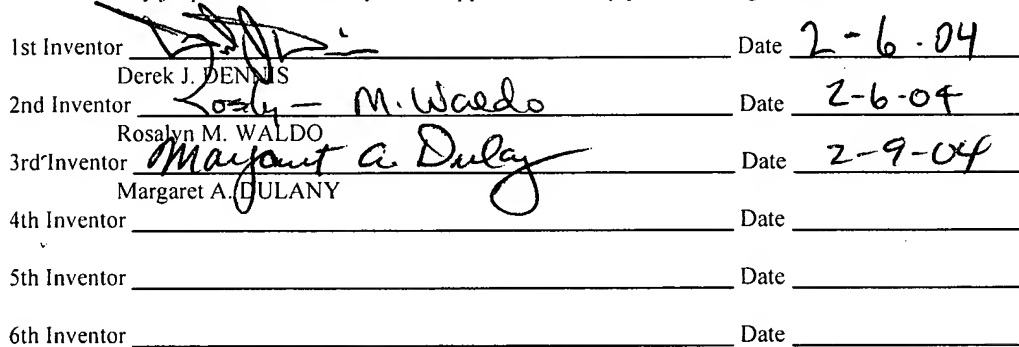 1st Inventor Date 2-6-04
Derek J. DENNIS
2nd Inventor M. Waldo Date 2-6-04
Rosalyn M. WALDO
3rd Inventor Margaret A. Dulany Date 2-9-04
Margaret A. DULANY
4th Inventor Date
5th Inventor Date
6th Inventor Date